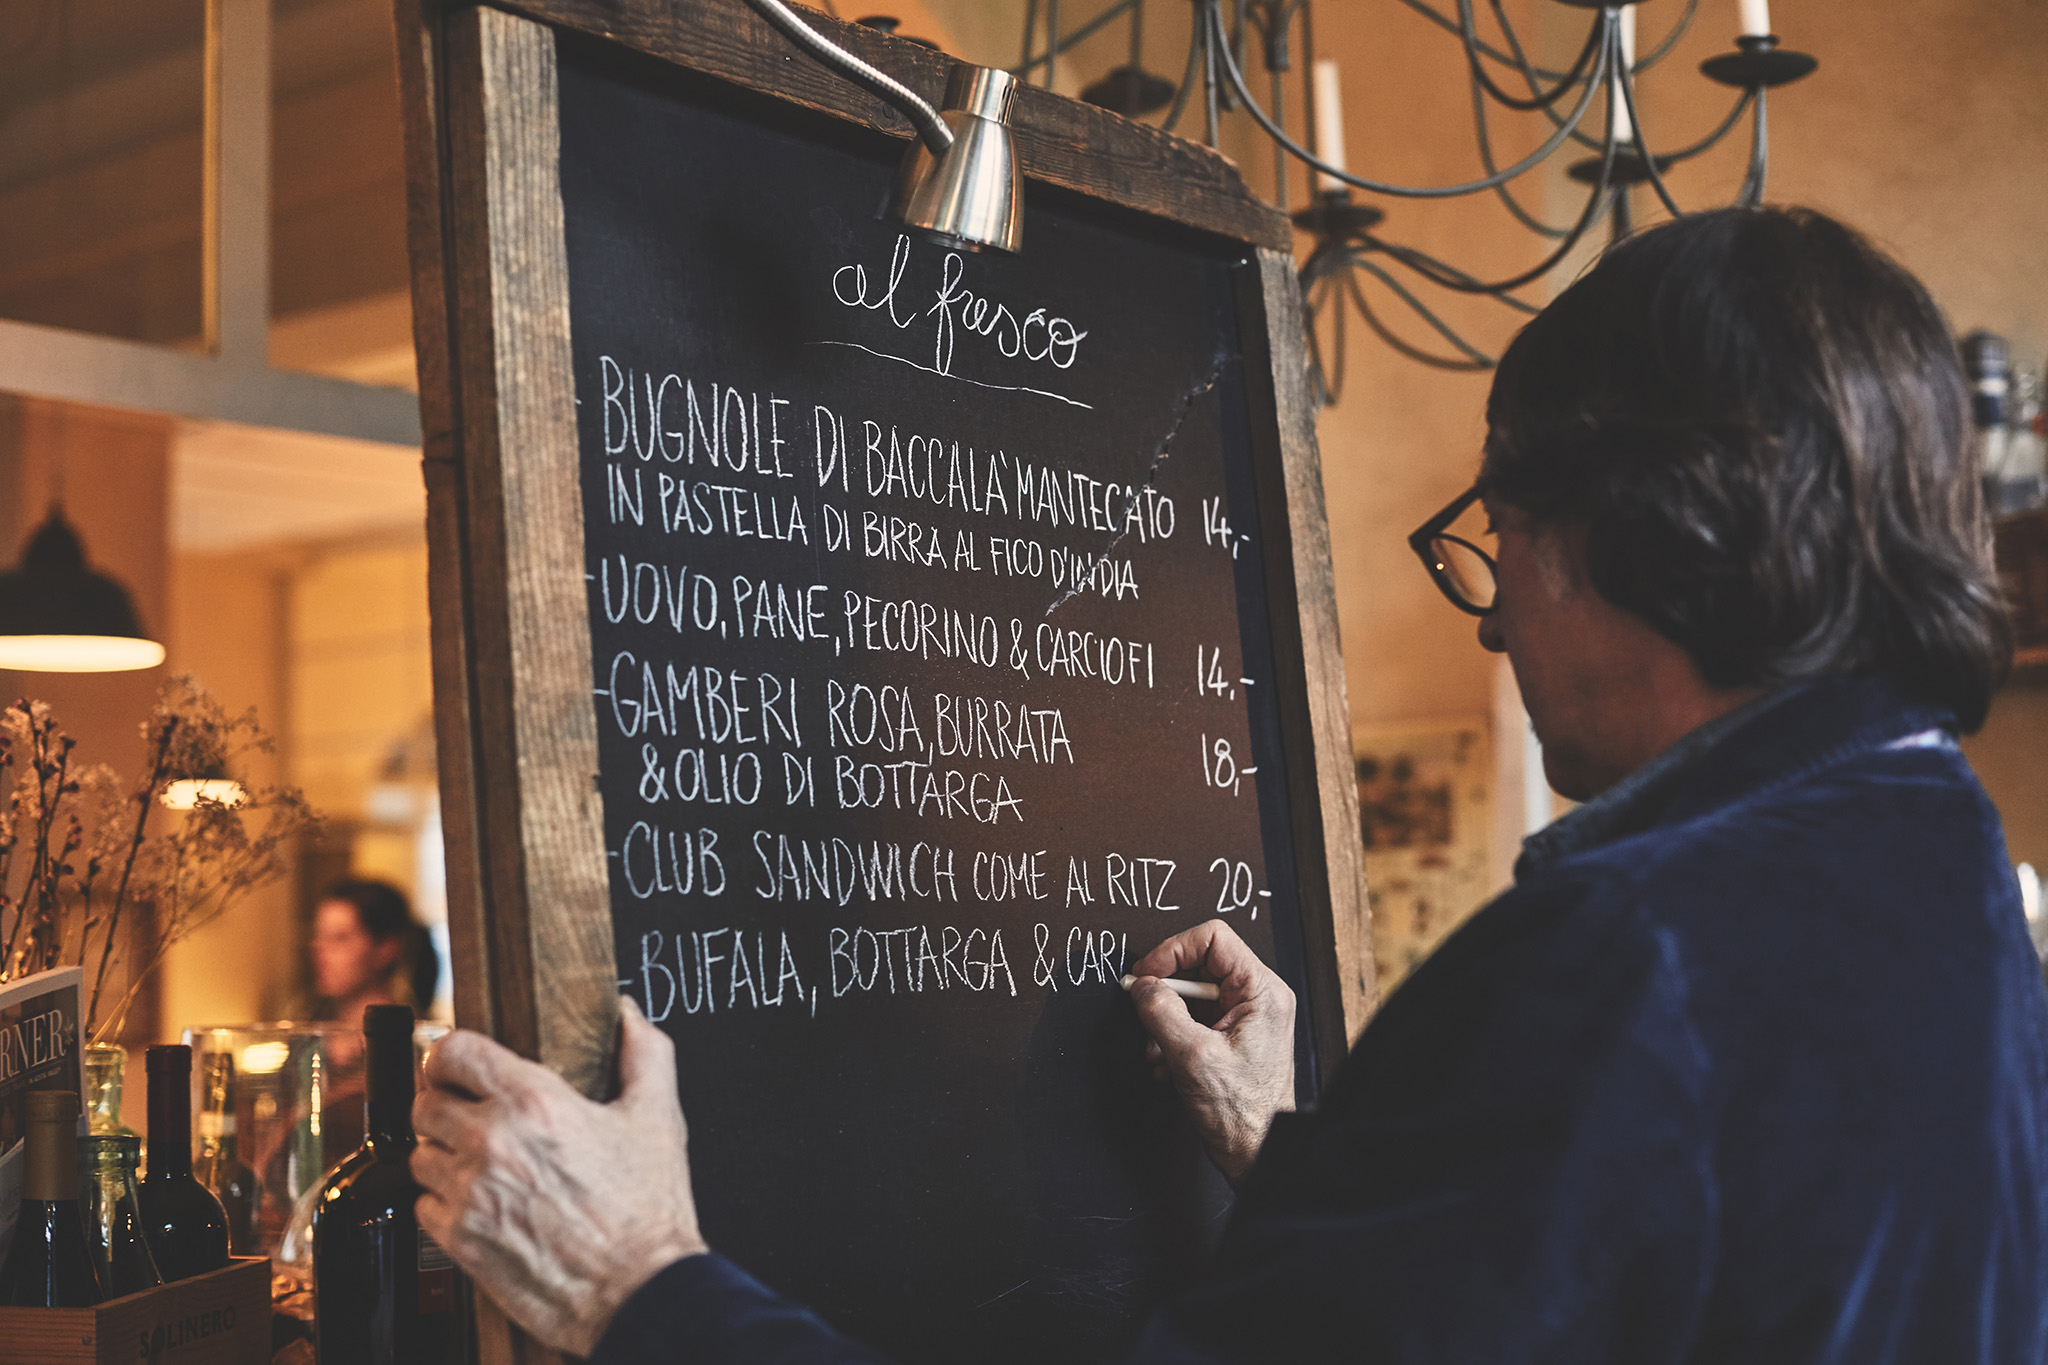 al fresco
- BUGNOLE DI BACCALA' MANTECATO 14,-
IN PASTELLA DI BIRRA AL FICO D'INDIA
- UOVO, PANE, PECORINO & CARCIOFI 14,-
- GAMBERI ROSA, BURRATA
& OLIO DI BOTTARGA 18,-
- CLUB SANDWICH COME AL RITZ 20,-
- BUFALA, BOTTARGA & CAR
RNER
SOLINERO